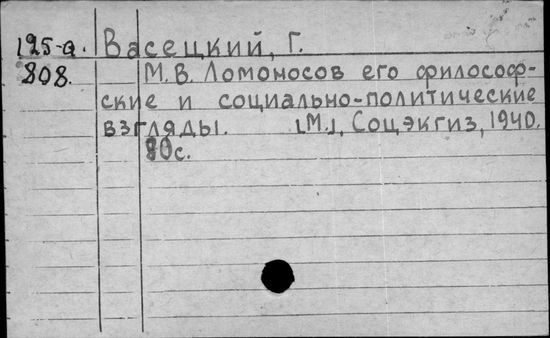 125-а. Васецкий, Г.
808. М. В. Ломоносов его философ-
ские и социально-политические
взгляды. [М.], Соцэкгиз, 1940.
80с.